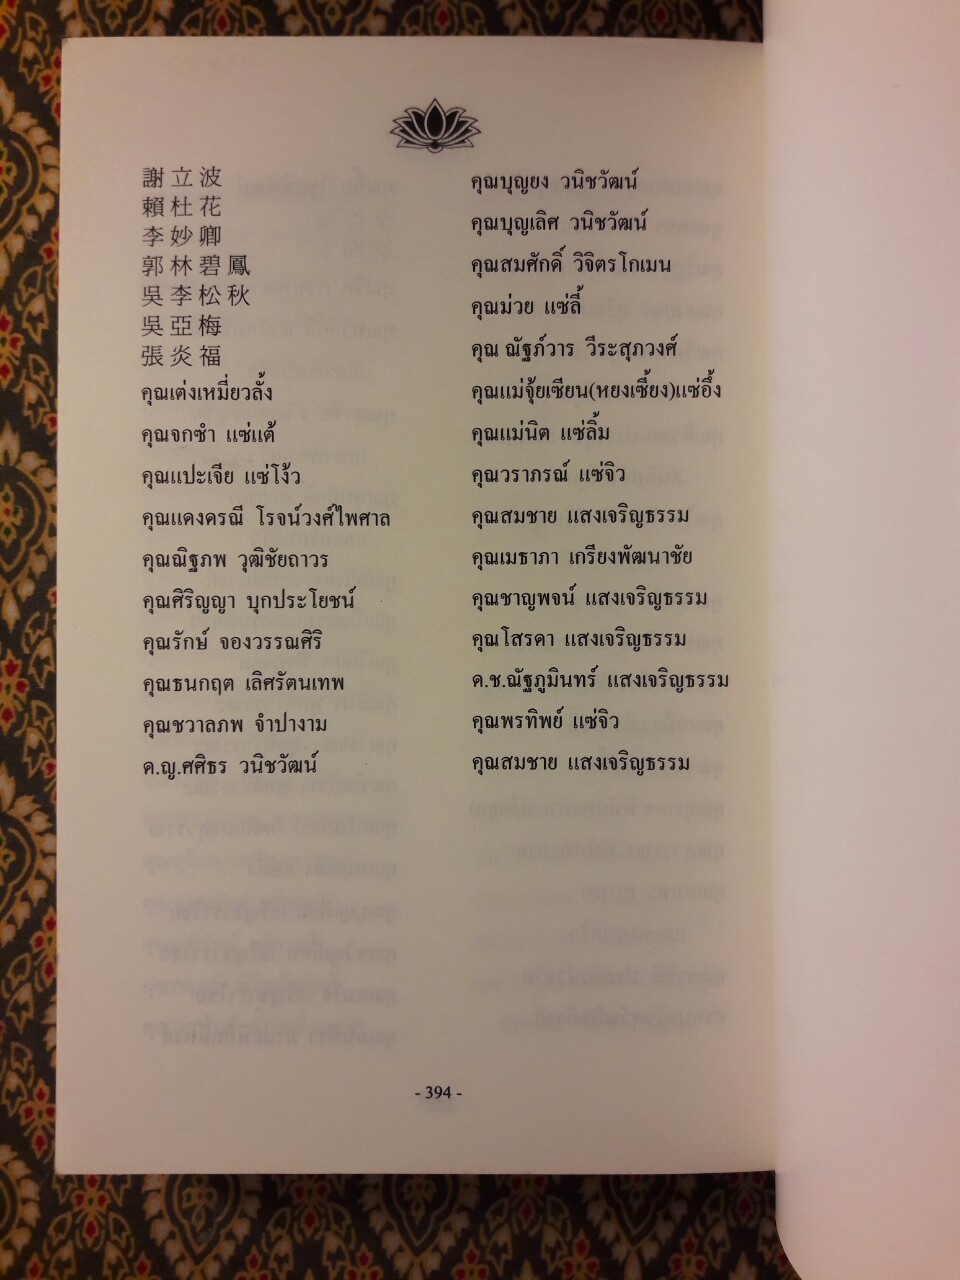 謝立波
賴杜花
李妙卿
郭林碧鳳
吳李松秋
吳亞梅
張炎福
คุณเต่งเหมี่ยวลั้ง
คุณจกซำ แซ่แต้
คุณแปะเจีย แซ่โง้ว
คุณแดงดรณี โรจน์วงศ์ไพศาล
คุณณิฐภพ วุฒิชัยถาวร
คุณศิริญญา บุกประโยชน์
คุณรักษ์ จองวรรณศิริ
คุณธนกฤต เลิศรัตนเทพ
คุณชวาลภพ จำปางาม
ด.ญ.ศศิธร วนิชวัฒน์
คุณบุญยง วนิชวัฒน์
คุณบุญเลิศ วนิชวัฒน์
คุณสมศักดิ์ วิจิตรโกเมน
คุณม่วย แซ่ลี้
คุณ ณัฐภ์วาร วีระสุภวงศ์
คุณแม่จุ้ยเซียน(หยงเซี้ยง)แซ่อึ้ง
คุณแม่นิต แซ่ลิ้ม
คุณวราภรณ์ แซ่จิว
คุณสมชาย แสงเจริญธรรม
คุณเมธาภา เกรียงพัฒนาชัย
คุณชาญพจน์ แสงเจริญธรรม
คุณโสรดา แสงเจริญธรรม
ด.ช.ณัฐภูมินทร์ แสงเจริญธรรม
คุณพรทิพย์ แซ่จิว
คุณสมชาย แสงเจริญธรรม
- 394 -